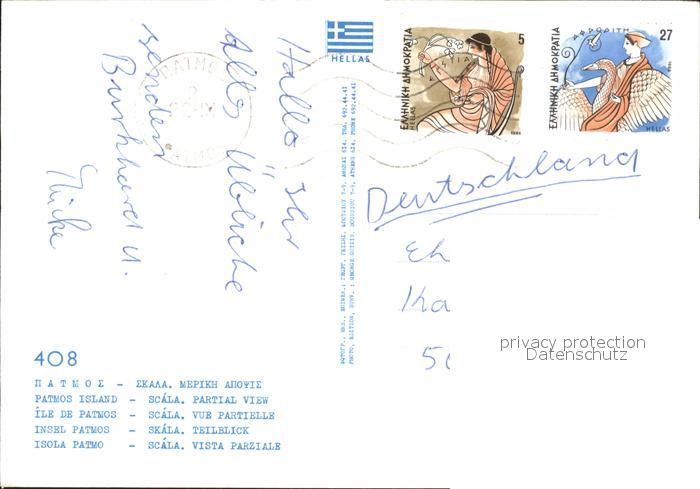 Hallo Ihr
Alles Übliche
senden
Burkhard u.
Heike
ΠΑΤΜΟ
HELLAS
ΕΛΛΗΝΙΚΗ ΔΗΜΟΚΡΑΤΙΑ
HELLAS
ΕΣΤΙΑ
5
1986
ΕΛΛΗΝΙΚΗ ΔΗΜΟΚΡΑΤΙΑ
ΑΦΡΟΔΙΤΗ
27
HELLAS
1986
Deutschland
Eh
Ka
privacy protection
Datenschutz
408
ΠΑΤΜΟΣ – ΣΚΑΛΑ. ΜΕΡΙΚΗ ΑΠΟΨΙΣ
PATMOS ISLAND – SCÁLA. PARTIAL VIEW
ÎLE DE PATMOS – SCÁLA. VUE PARTIELLE
INSEL PATMOS – SKÁLA. TEILBLICK
ISOLA PATMO – SCÁLA. VISTA PARZIALE